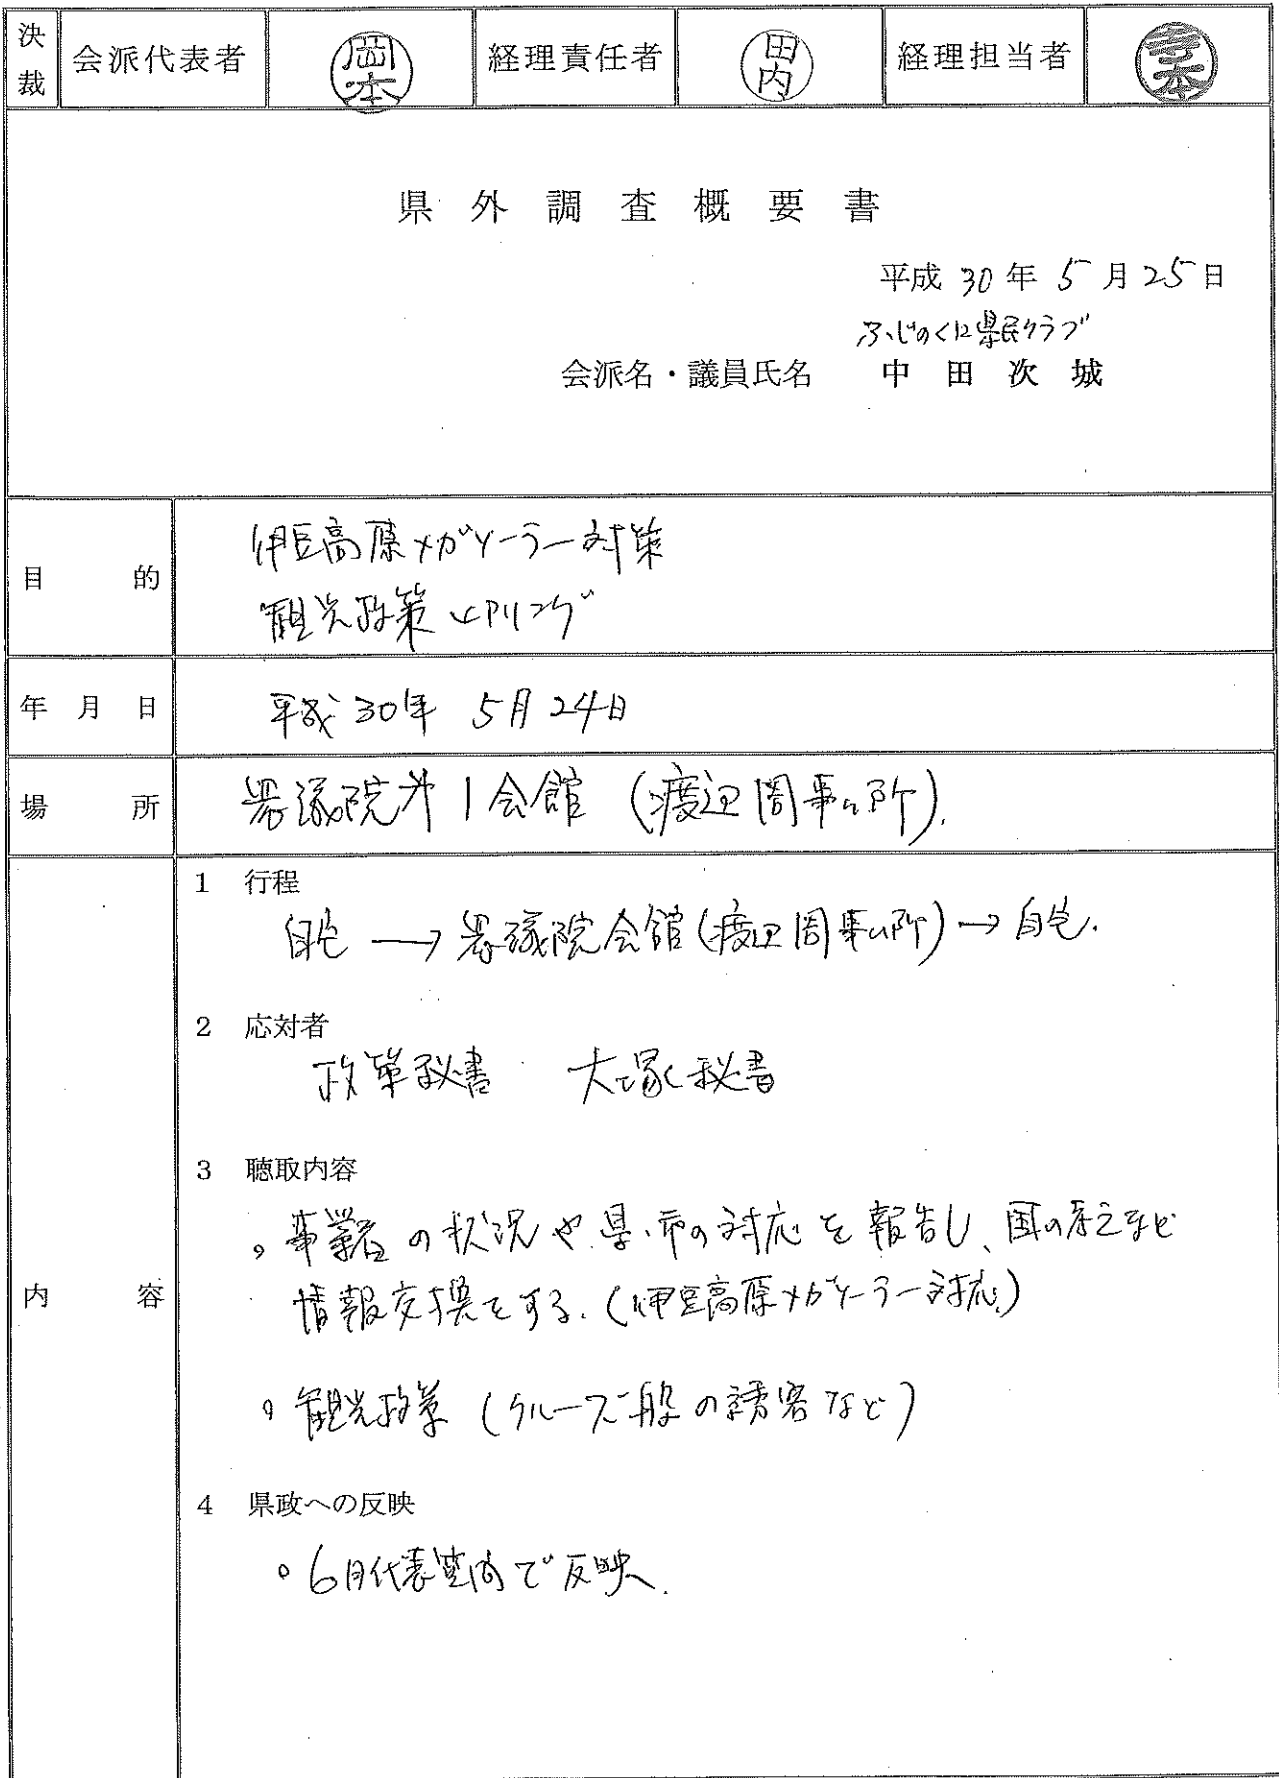 決裁 会派代表者 岡本 経理責任者 田内 経理担当者
県外調査概要書
平成 30 年 5 月 25 日
ふじのくに県民クラブ
会派名・議員氏名 中田次城
目的
伊豆高原メガソーラー対策
観光政策ヒアリング
年月日 平成30年 5月24日
場所 衆議院第1会館 (渡辺周事務所).
内容
1 行程
自宅 → 衆議院会館(渡辺周事務所) → 自宅.
2 応対者
政策秘書 大塚秘書
3 聴取内容
。事業者の状況や県・市の対応を報告し、国の考えなど
情報交換をする.(伊豆高原メガソーラー対応.)
。観光政策 (クルーズ船の誘客など)
4 県政への反映
。6月代表質問で反映.